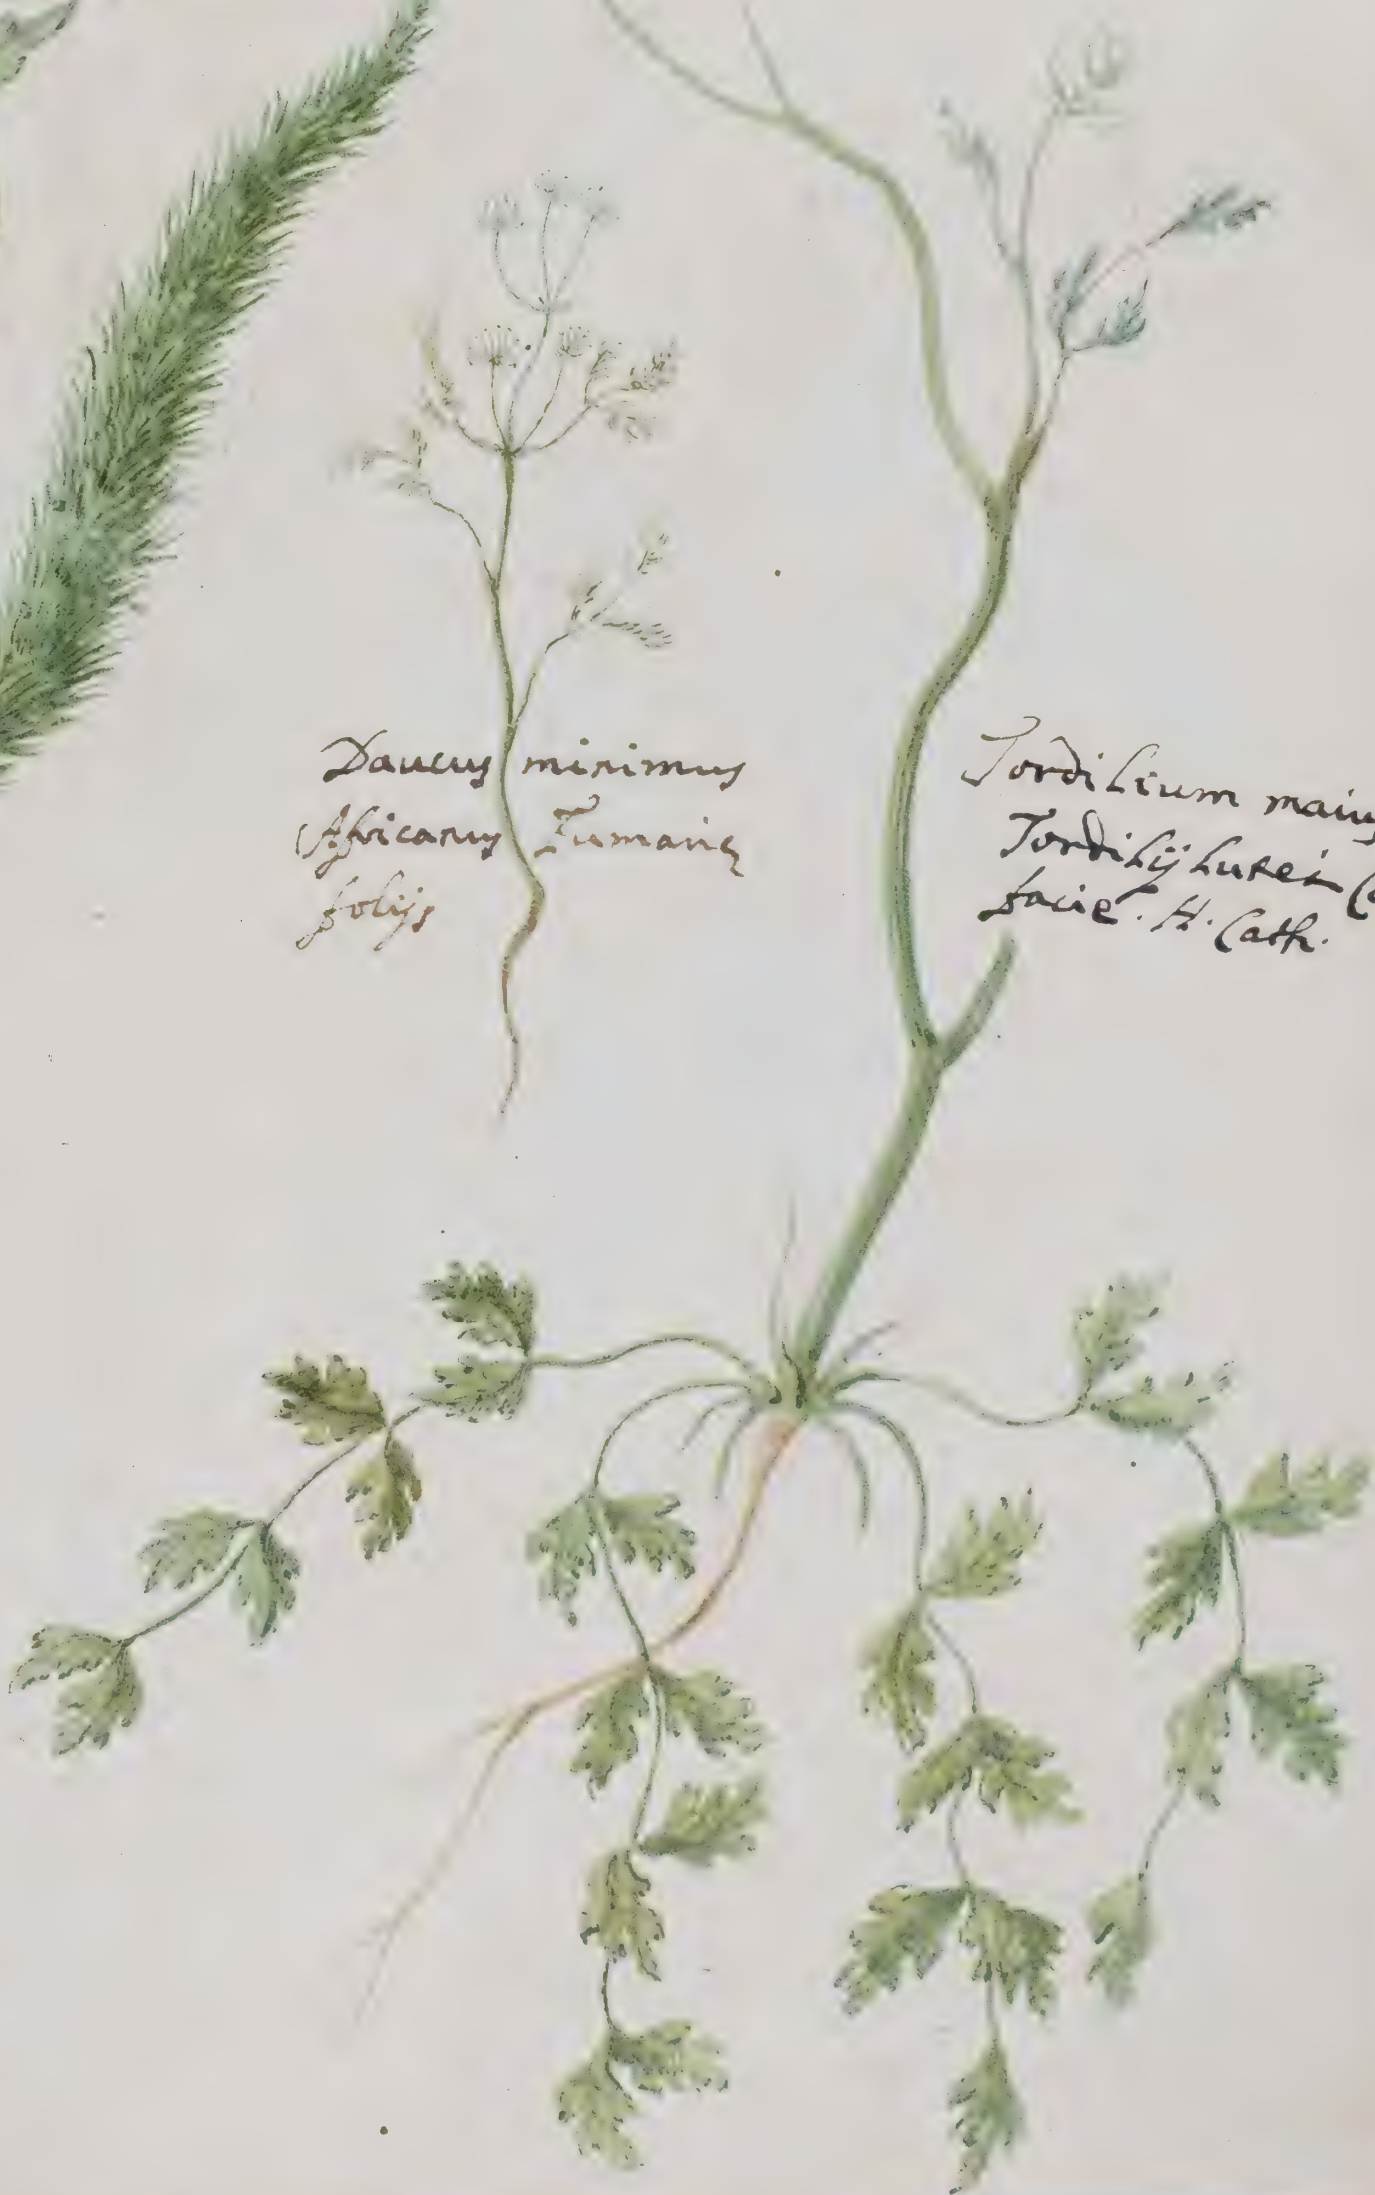 Daucus minimus
Africanus Fumarię
folijs
Tordilium maius
Tordilij Lutei
facie. H. Cath.